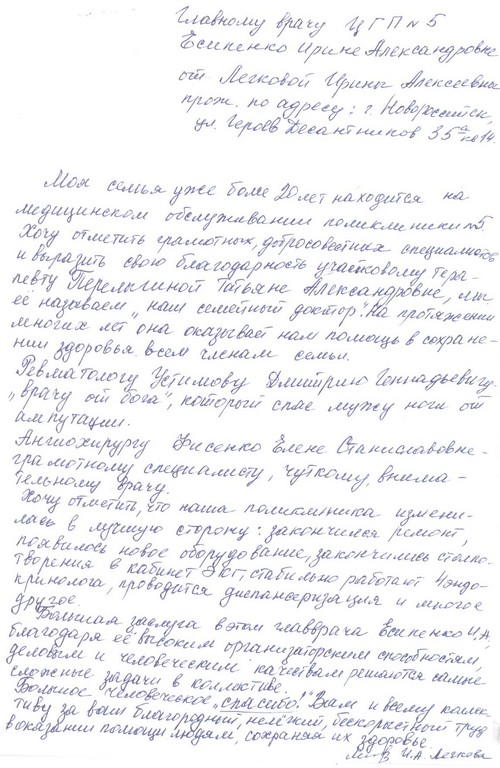 Главному врачу ЦГП №5
Есипенко Ирине Александровне
от Легковой Ирины Алексеевны
прож. по адресу: г. Новороссийск,
ул. Героев Десантников 35
Моя семья уже более 20 лет находится на
медицинском обслуживании поликлиники №5.
Хочу отметить грамотных, добросовестных специалистов
и выразить свою благодарность участковому тера-
певту Перелыгиной Татьяне Александровне, мы
её называем „наш семейный доктор". На протяжении
многих лет она оказывает нам помощь в сохране-
нии здоровья всем членам семьи.
Ревматологу Устимову Дмитрию Геннадьевичу-
„врачу от бога", который спас мужу ноги от
ампутации.
Ангиохирургу Фисенко Елене Станиславовне-
грамотному специалисту, чуткому, внима-
тельному врачу.
Хочу отметить, что наша поликлиника измени-
лась в лучшую сторону: закончился ремонт,
появилось новое оборудование, закончились столпо-
творения в кабинет ЭКГ, стабильно работают эндо-
кринолога, проводится диспансеризация и многое
другое.
Большая заслуга в этом главврача Есипенко И.А,
благодаря её высоким организаторским способностям,
деловым и человеческим качествам решаются самые
сложные задачи в коллективе.
Большое человеческое „спасибо!" Вам и всему коллек-
тиву за ваш благородный, нелёгкий, бескорыстный труд
в оказании помощи людям, сохраняя их здоровье.
И.А. Легкова